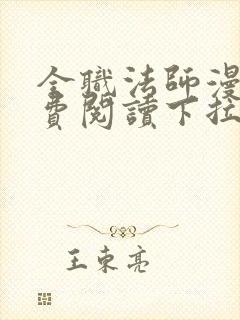 全職法師漫
費閱讀下拉
王東亮